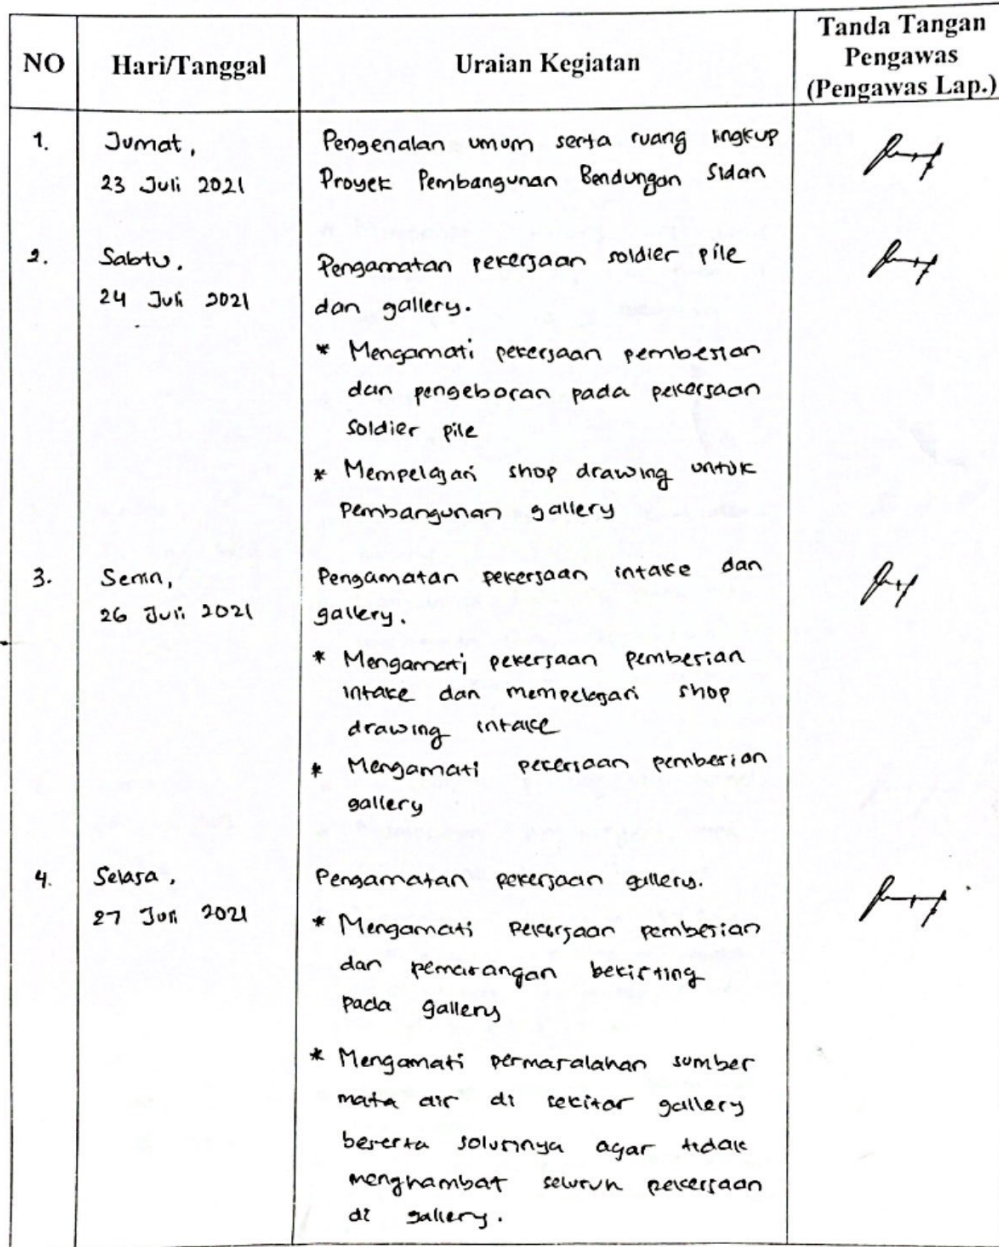 NO Hari/Tanggal Uraian Kegiatan Tanda Tangan Pengawas (Pengawas Lap.)
1. Jumat, Pengenalan umum serta ruang lingkup
23 Juli 2021 Proyek Pembangunan Bendungan Sidan
2. Sabtu, Pengamatan pekerjaan soldier pile
24 Juli 2021 dan gallery.
* Mengamati pekerjaan pembesian
dan pengeboran pada pekerjaan
soldier pile
* Mempelajari shop drawing untuk
pembangunan gallery
3. Senin, Pengamatan pekerjaan intake dan
26 Juli 2021 gallery.
* Mengamati pekerjaan pembesian
intake dan mempelajari shop
drawing intake
* Mengamati pekerjaan pembesian
gallery
4. Selasa, Pengamatan pekerjaan gallery.
27 Juli 2021 * Mengamati pekerjaan pembesian
dan pemasangan bekisting
pada gallery
* Mengamati permasalahan sumber
mata air di sekitar gallery
beserta solusinya agar tidak
menghambat seluruh pekerjaan
di gallery.